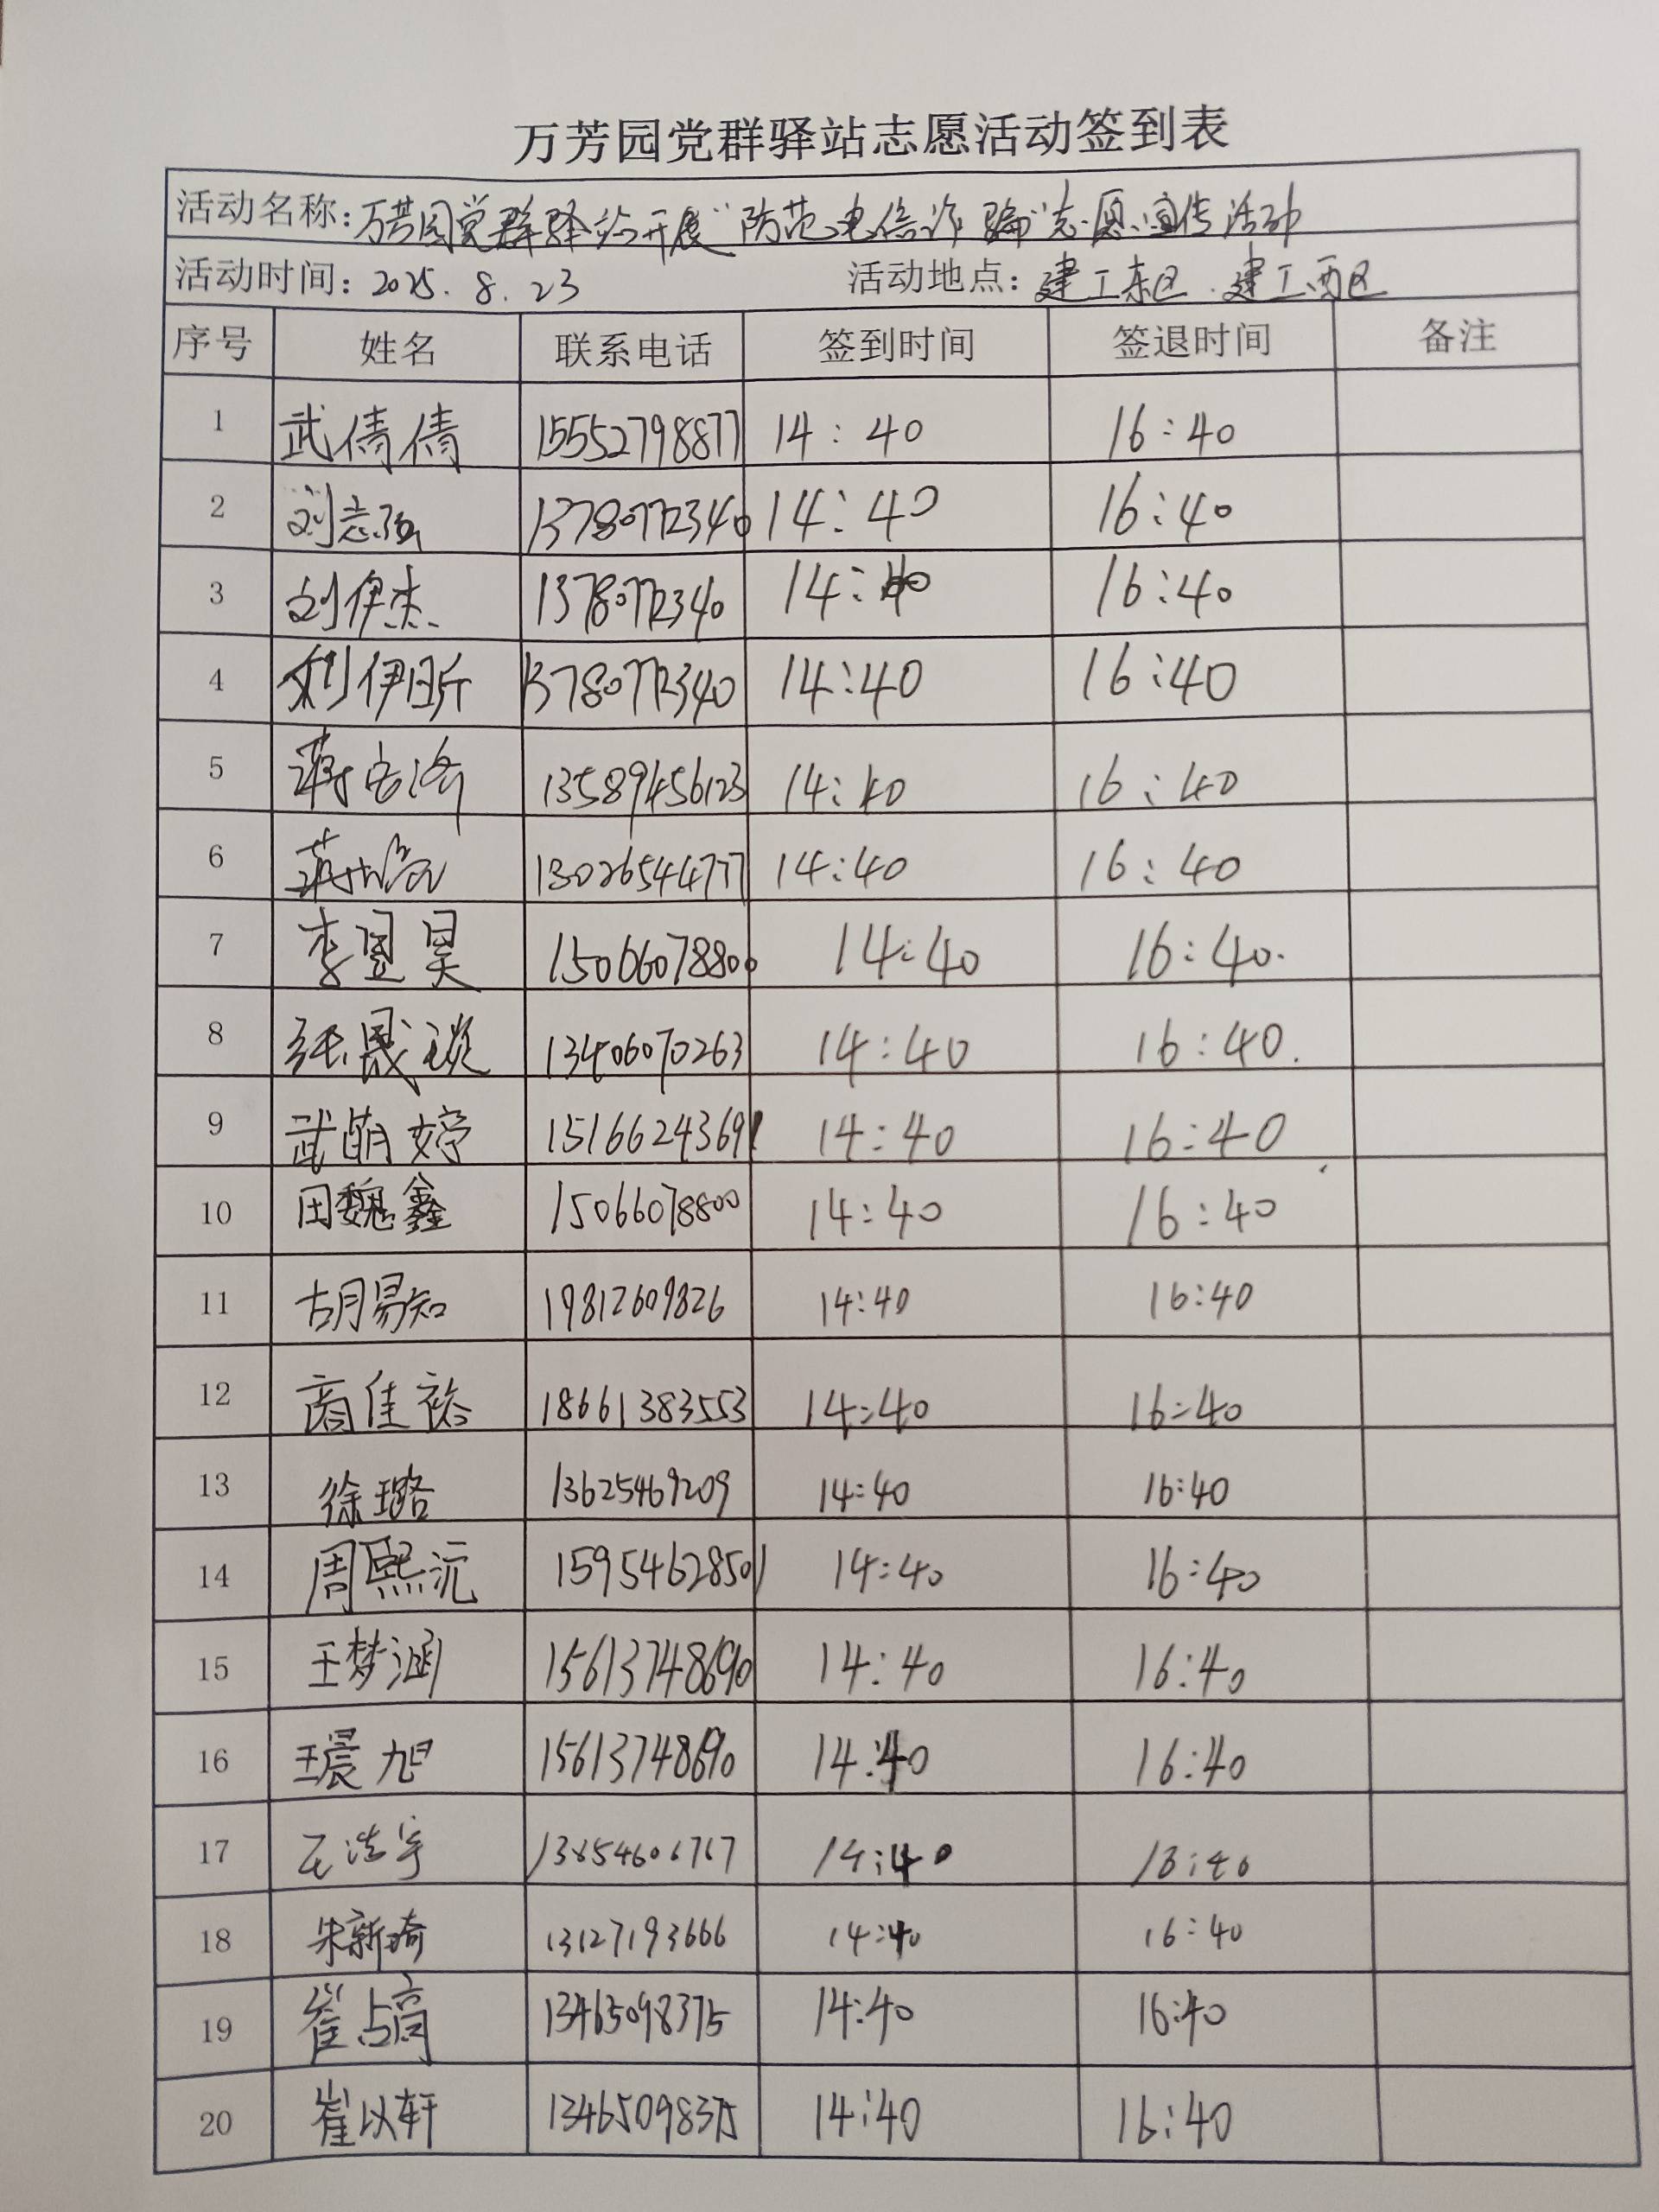 万芳园党群驿站志愿活动签到表
活动名称：万芳园党群驿站开展“防范电信诈骗”志愿宣传活动
活动时间：2025.8.23 活动地点：建工东区.建工西区
序号 姓名 联系电话 签到时间 签退时间 备注
1 武倩倩 15552798877 14:40 16:40
2 刘志强 13780772340 14:40 16:40
3 刘伊杰 13780772340 14:40 16:40
4 刘伊昕 13780772340 14:40 16:40
5 蒋 13589456123 14:40 16:40
6 蒋 13026544777 14:40 16:40
7 李昱昊 15066078800 14:40 16:40.
8 张晟琰 13406070263 14:40 16:40.
9 武萌婷 15166243691 14:40 16:40
10 田魏鑫 15066078800 14:40 16:40
11 胡易知 19812609826 14:40 16:40
12 商佳裕 18661383553 14:40 16:40
13 徐璐 13625469209 14:40 16:40
14 周熙沅 15954628501 14:40 16:40
15 王梦涵 15613748690 14:40 16:40
16 王晨旭 15613748690 14:40 16:40
17 王浩宇 14:40 16:40
18 朱新琦 13127193666 14:40 16:40
19 崔占高 13465098375 14:40 16:40
20 崔以轩 13465098375 14:40 16:40